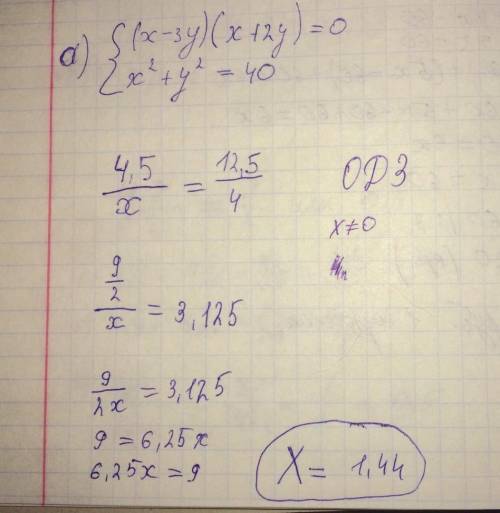 а) { (x-3y)(x+2y)=0
x² + y² = 40
4,5/x = 12,5/4
ОДЗ
x≠0
9/2/x = 3,125
9/2x = 3,125
9 = 6,25x
6,25x = 9
X = 1,44